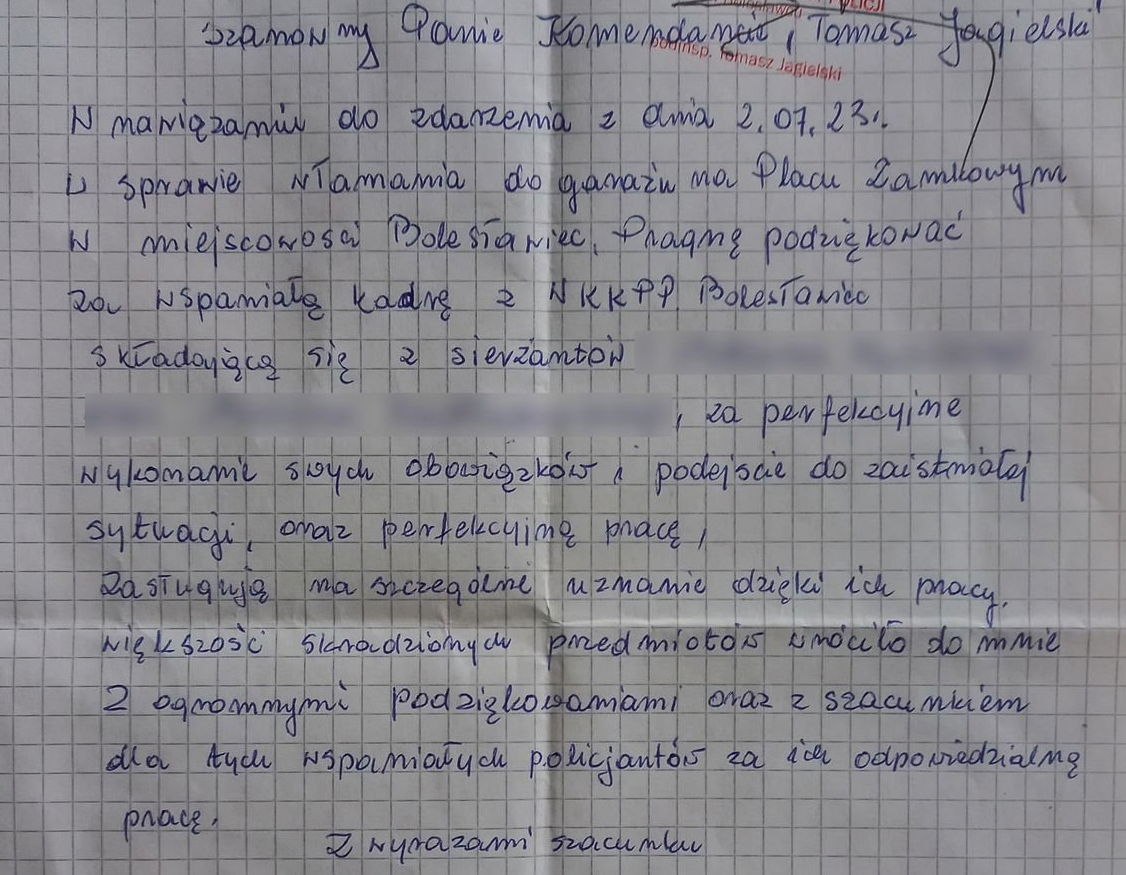 Szanowny Panie Komendancie, Tomasz Jagielski
podinsp. Tomasz Jagielski
W nawiązaniu do zdarzenia z dnia 2.07.23r.
W sprawie włamania do garażu na Placu Zamkowym
w miejscowości Bolesławiec, Pragnę podziękować
za wspaniałą kadrę z WKKPP Bolesławiec
składającą się z sierżantów
, za perfekcyjne
wykonanie swych obowiązków i podejście do zaistniałej
sytuacji, oraz perfekcyjną pracę,
Zasługują na szczególne uznanie dzięki ich pracy.
większość skradzionych przedmiotów wróciło do mnie
Z ogrommymi podziękowaniami oraz z szacunkiem
dla tych wspaniałych policjantów za ich odpowiedzialną
pracę.
Z wyrazami szacunku